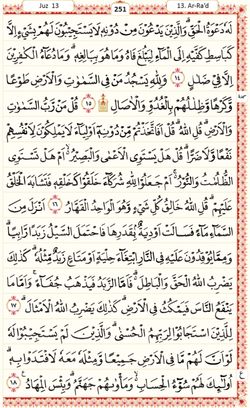 Juz 13
251
13. Ar-Ra'd
لَهُ دَعْوَةُ الْحَقِّ وَالَّذِينَ يَدْعُونَ مِنْ دُونِهِ لَا يَسْتَجِيبُونَ لَهُمْ بِشَيْءٍ إِلَّا
كَبَاسِطِ كَفَّيْهِ إِلَى الْمَاءِ لِيَبْلُغَ فَاهُ وَمَا هُوَ بِبَالِغِهِ وَمَا دُعَاءُ الْكَافِرِينَ
إِلَّا فِي ضَلَالٍ ١٤ وَلِلَّهِ يَسْجُدُ مَنْ فِي السَّمَاوَاتِ وَالْأَرْضِ طَوْعًا
وَكَرْهًا وَظِلَالُهُمْ بِالْغُدُوِّ وَالْآصَالِ ١٥ قُلْ مَنْ رَبُّ السَّمَاوَاتِ
وَالْأَرْضِ قُلِ اللَّهُ قُلْ أَفَاتَّخَذْتُمْ مِنْ دُونِهِ أَوْلِيَاءَ لَا يَمْلِكُونَ لِأَنْفُسِهِمْ
نَفْعًا وَلَا ضَرًّا قُلْ هَلْ يَسْتَوِي الْأَعْمَى وَالْبَصِيرُ أَمْ هَلْ تَسْتَوِي
الظُّلُمَاتُ وَالنُّورُ أَمْ جَعَلُوا لِلَّهِ شُرَكَاءَ خَلَقُوا كَخَلْقِهِ فَتَشَابَهَ الْخَلْقُ
عَلَيْهِمْ قُلِ اللَّهُ خَالِقُ كُلِّ شَيْءٍ وَهُوَ الْوَاحِدُ الْقَهَّارُ ١٦ أَنْزَلَ مِنَ
السَّمَاءِ مَاءً فَسَالَتْ أَوْدِيَةٌ بِقَدَرِهَا فَاحْتَمَلَ السَّيْلُ زَبَدًا رَابِيًا
وَمِمَّا يُوقِدُونَ عَلَيْهِ فِي النَّارِ ابْتِغَاءَ حِلْيَةٍ أَوْ مَتَاعٍ زَبَدٌ مِثْلُهُ كَذَلِكَ
يَضْرِبُ اللَّهُ الْحَقَّ وَالْبَاطِلَ فَأَمَّا الزَّبَدُ فَيَذْهَبُ جُفَاءً وَأَمَّا مَا
يَنْفَعُ النَّاسَ فَيَمْكُثُ فِي الْأَرْضِ كَذَلِكَ يَضْرِبُ اللَّهُ الْأَمْثَالَ ١٧
لِلَّذِينَ اسْتَجَابُوا لِرَبِّهِمُ الْحُسْنَى وَالَّذِينَ لَمْ يَسْتَجِيبُوا لَهُ
لَوْ أَنَّ لَهُمْ مَا فِي الْأَرْضِ جَمِيعًا وَمِثْلَهُ مَعَهُ لَافْتَدَوْا بِهِ
أُولَئِكَ لَهُمْ سُوءُ الْحِسَابِ وَمَأْوَاهُمْ جَهَنَّمُ وَبِئْسَ الْمِهَادُ ١٨